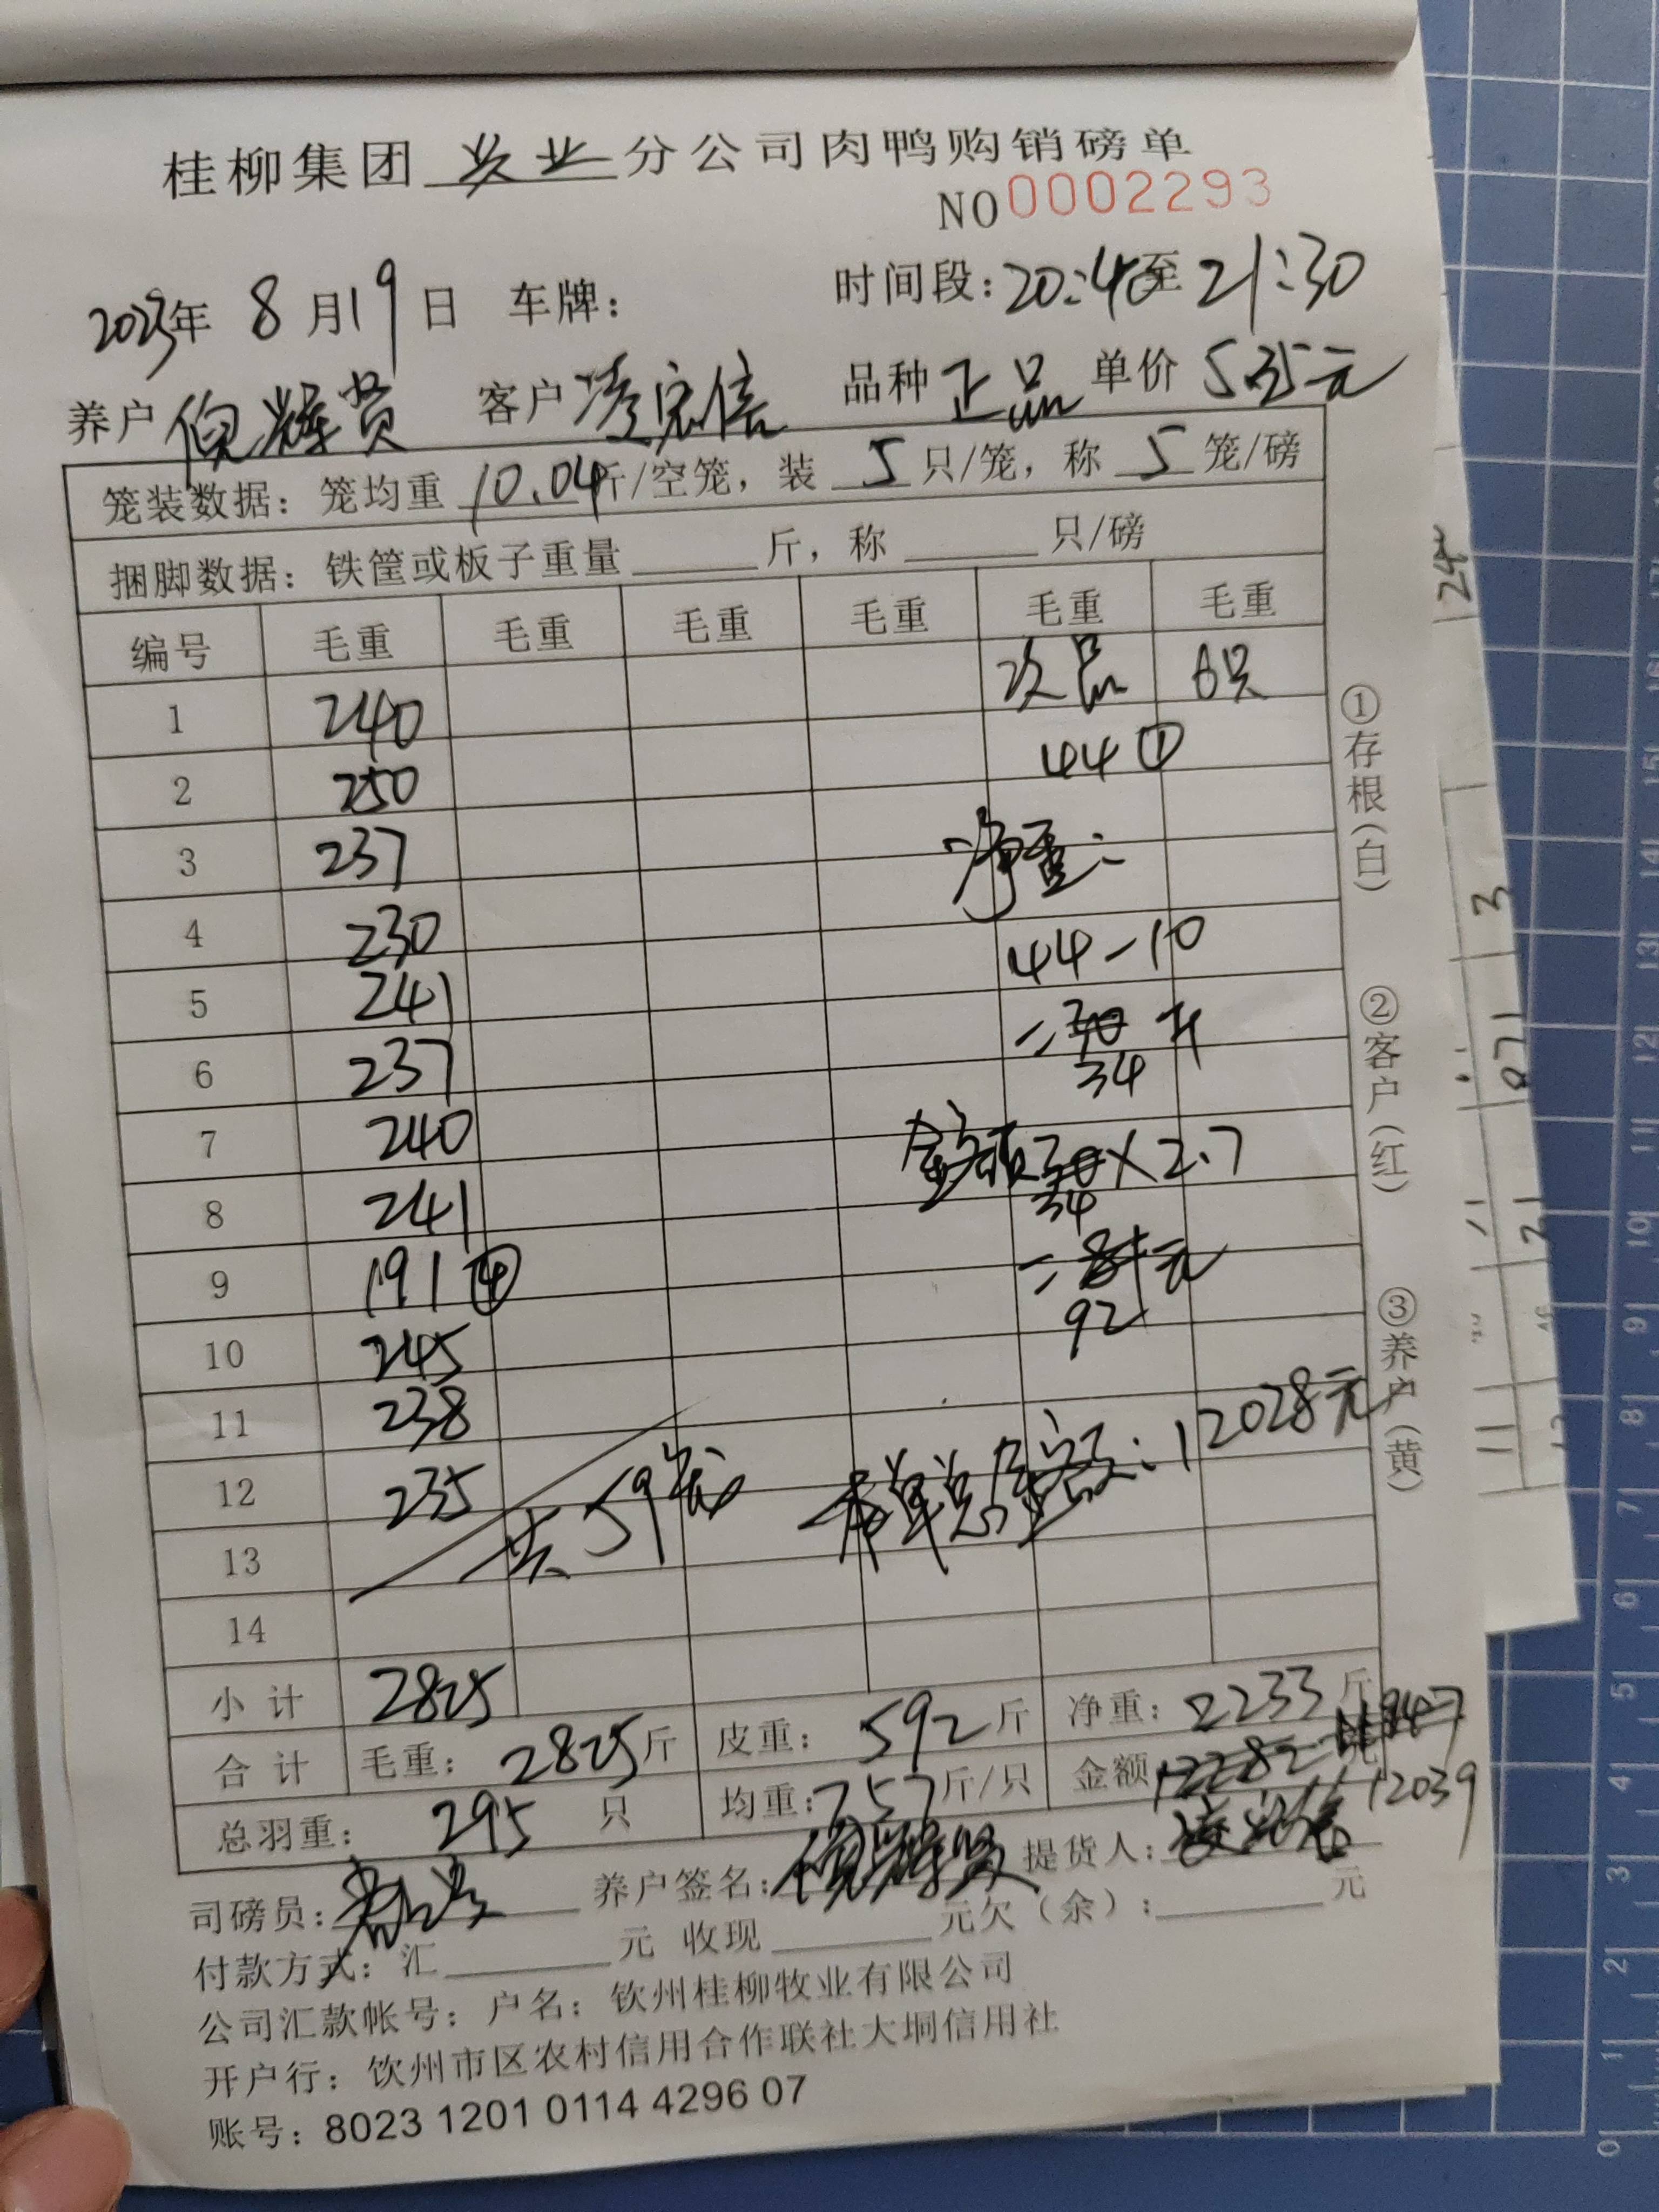 桂柳集团 兴业 分公司肉鸭购销磅单
NO 0002293
2023年 8月19日 车牌： 时间段：20:40至 21:30
养户 倪辉贤 客户 凌宏信 品种 正品 单价 5.35元
笼装数据：笼均重 10.04斤/空笼，装 5 只/笼，称 5 笼/磅
捆脚数据：铁筐或板子重量 斤，称 只/磅
编号 毛重 毛重 毛重 毛重 毛重 毛重
次品 6只
1 240
44 ①
2 250
3 237 净重：
4 230 44-10
5 241 =30 斤
34
6 237
7 240 金额 30×2.7
34
8 241 =81元
9 191 ④ 92
10 245
11 238
12 235 共59笼 本单总金额：12028元
13
14
小计 2825
合计 毛重：2825斤 皮重：592斤 净重：2233斤
11947
总羽重：295只 均重：7.57斤/只 金额 12282元
12039
司磅员： 养户签名：倪辉贤 提货人：凌宏信
付款方式：汇 元 收现 元欠（余）： 元
公司汇款帐号：户名：钦州桂柳牧业有限公司
开户行：钦州市区农村信用合作联社大垌信用社
账号：8023 1201 0114 4296 07
①存根（白）
②客户（红）
③养户（黄）